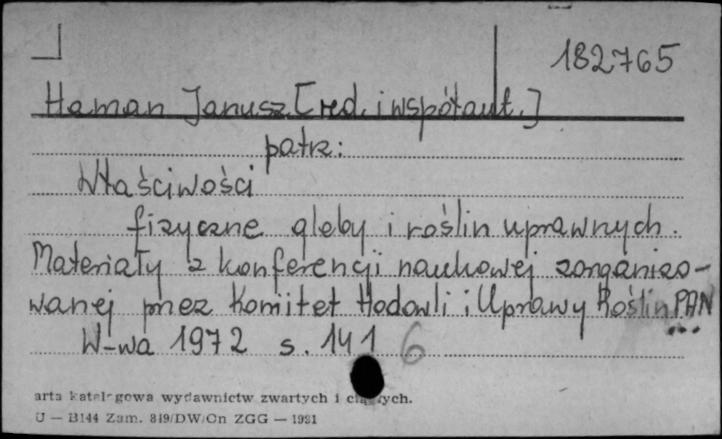 182765
Haman Janusz [red. i współaut.]
patrz:
Właściwości
fizyczne gleby i roślin uprawnych.
Materiały z konferencji naukowej zorganizo-
wanej przez Komitet Hodowli i Uprawy Roślin PAN
W-wa 1972 s. 141 6
arta katalogowa wydawnictw zwartych i ciągłych.
U — B144 Zam. 819/DW/On ZGG — 1981